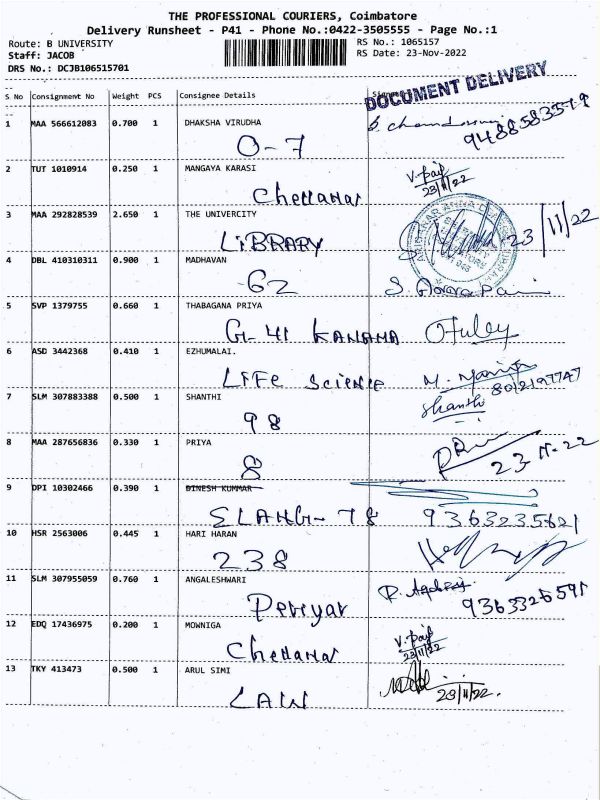 THE PROFESSIONAL COURIERS, Coimbatore
Delivery Runsheet - P41 - Phone No.:0422-3505555 - Page No.:1
Route: B UNIVERSITY
RS No.: 1065157
Staff: JACOB
RS Date: 23-Nov-2022
DRS No.: DCJB106515701
DOCUMENT DELIVERY
S No Consignment No Weight PCS Consignee Details
1 MAA 566612083 0.700 1 DHAKSHA VIRUDHA
0-7
2 TUT 1010914 0.250 1 MANGAYA KARASI
V. 
23/11/22
3 MAA 292828539 2.650 1 THE UNIVERCITY
LiBRARY 23/11/22
4 DBL 410310311 0.900 1 MADHAVAN
62
5 SVP 1379755 0.660 1 THABAGANA PRIYA
G-41
6 ASD 3442368 0.410 1 EZHUMALAI.
LIFe Science
7 SLM 307883388 0.500 1 SHANTHI
Shanthi
98
8 MAA 287656836 0.330 1 PRIYA
8 23-11-22
9 DPI 10302466 0.390 1 DINESH KUMMAR
78 9363235621
10 HSR 2563006 0.445 1 HARI HARAN
238
11 SLM 307955059 0.760 1 ANGALESHWARI
Periyar 9363326591
12 EDQ 17436975 0.200 1 MOWNIGA
23/11/22
13 TKY 413473 0.500 1 ARUL SIMI
LAW 23/11/22.